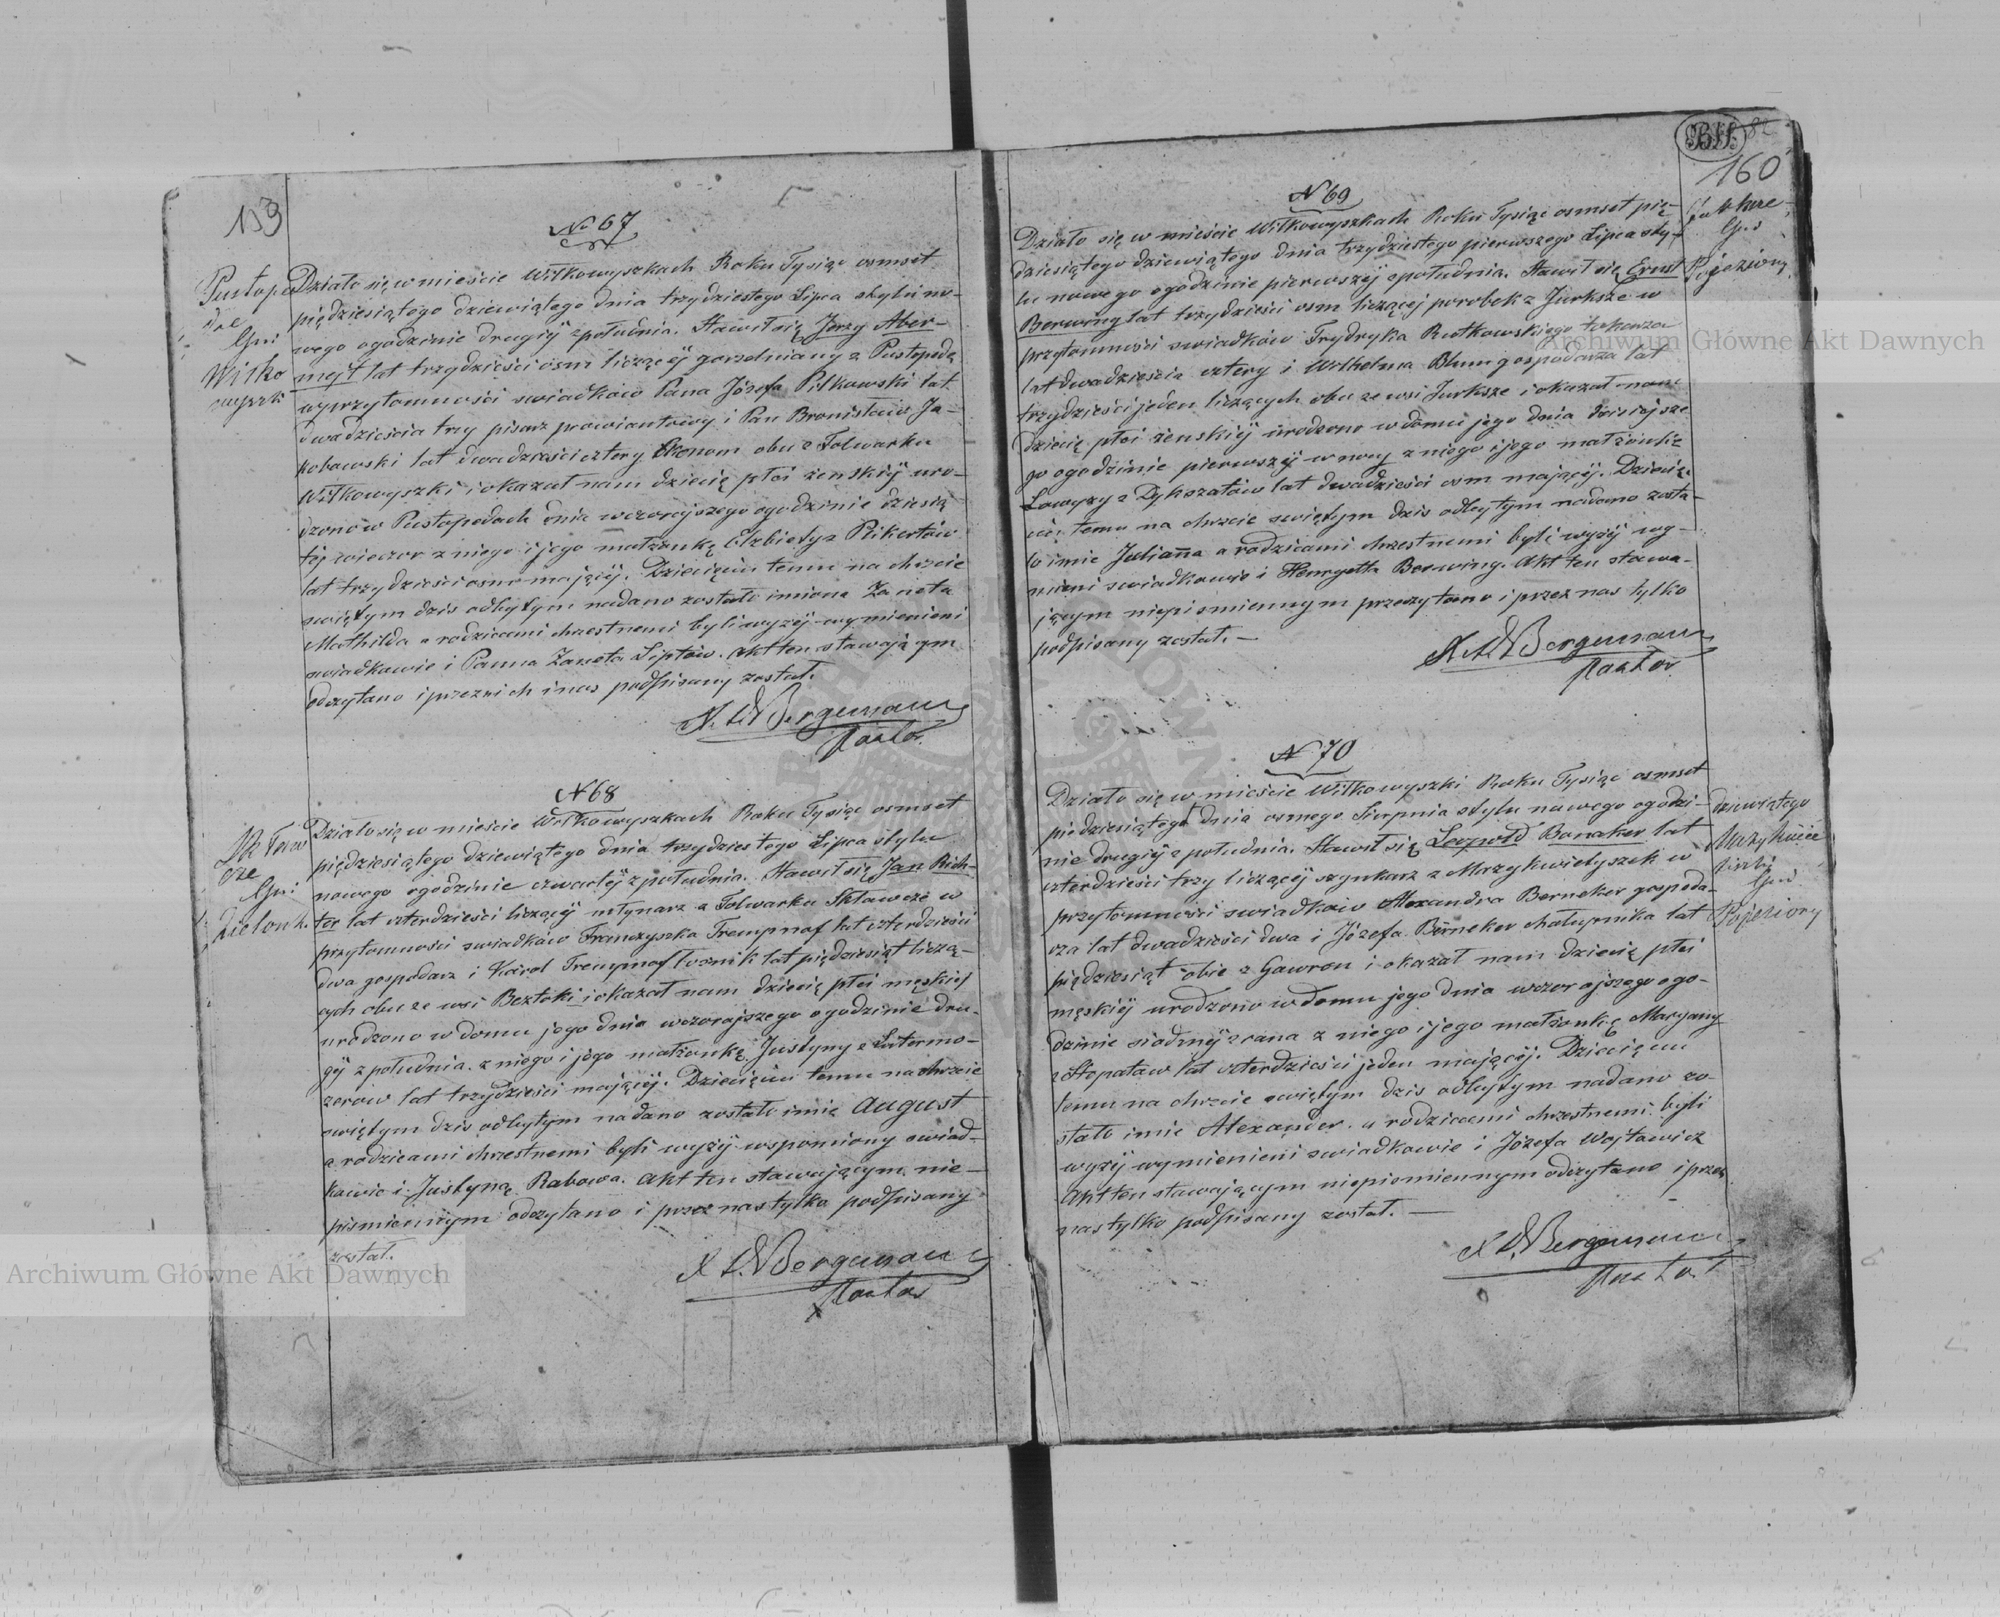 153
No 67
Pustope
dae
Gm:
Wiłko
wyszki
Działo się w mieście Wiłkowyszkach Roku Tysiąc osmset
piędziesiątego dziewiątego dnia trzydziestego Lipca stylu no-
wego ogodzinie drugiéj zpołudnia. Stawił się Jerzy Aber-
mejt lat trzydzieści ósm liczący gorzelniany z Pustopedą
wprzytomności swiadków Pana Józefa Piłkowski lat
dwadzieścia trzy pisarz prowiantowy i Pan Bronisław Ja-
kobowski lat dwadzieści cztery Ekonom obu z Folwarku
Wiłkowyszki i okazał nam dziecię płci żenskiéj uro-
dzono w Pustopedach dnia wczorajszego ogodzinie dziesią
téj wieczor z niego i jego małżonkę Elżbiety z Pikertów
lat trzydzieści osm mającéj. Dziecięciu temu na chrzcie
swiętym dzis odbytym nadano zostało imiona Żaneta
Mathilda a rodzicami chrzestnemi byli wyżéj wymienieni
swiadkowie i Panna Żaneta Liptów. Akt ten stawają ym
odczytano i przez nich i nas podpisany został.
X. L. Bergemann
Pastor.
N 68
Gm:
Zielonk.
Działo się w mieście Wiłkowyszkach Roku Tysiąc osmset
piędziesiątego dziewiątego dnia trzydziestego Lipca stylu
nowego ogodzinie czwartéj z południa. Stawił się Jan Rich-
ter lat czterdzieści liczący młynarz z Folwarku Skławcze w
przytomności swiadków Franciszka Trempnaf lat czterdzieści
dwa gospodarz i Karol Trempnaf lat piędziesiąt liczą-
cych obu ze wsi Beztoki i okazał nam dziecię płci męskiéj
urodzono w domu jego dnia wczorajszego ogodzinie dru-
géj z południa. z niego i jego małżonkę Justyny z Lutermo-
zerów lat trzydzieści mającéj. Dziecięciu temu na chrzcie
swiętym dzis odbytym nadano zostało imie August
a rodzicami chrzestnemi byli wyżéj wspomiony swiad-
kowie i Justyną Rabowa. Akt ten stawającym nie-
pismiennym odczytano i przez nas tylko podpisany
został.
X L. Bergemann
Pastor
82
160
N 69
Jurksze
Gm:
Pojeziory
Działo się w mieście Wiłkowyszkach Roku Tysiąc osmset pię-
dziesiątego dziewiątego dnia trzydziestego pierwszego Lipca sty-
lu nowego ogodzinie pierwszéj zpołudnia. Stawił się Ernst
Berwing lat trzydzieści osm liczącéj porobek z Jurksze w
przytomności swiadków Frydryka Rutkowskiego tokarza
lat dwadzieścia cztery i Wilhelma Blum gospodarza lat
trzydzieści jeden liczących obu ze wsi Jurksze i okazał nam
dziecię płci żenskiéj urodzono w domu jego dnia dzisiejsze
go ogodzinie pierwszéj w nocy z niego i jego małżonkę
Lowyzy z Dykszatów lat dwadzieści osm mającéj. Dziecię-
ciu temu na chrzcie swiętym dzis odbytym nadano zosta-
ło imie Julianna a rodzicami chrzestnemi byli wyżéj wy-
mieni swiadkowie i Henryetta Berwing. Akt ten stawa-
jącym niepismiennym przeczytano i przez nas tylko
podpisany został. —
X. L. Bergemann
Pastor.
N 70
dziewiątego
Gm:
Pojeziory
Działo się w mieście Wiłkowyszki Roku Tysiąc osmset
piedziesiątego dnia osmego Sierpnia stylu nowego ogodzi-
nie drugiéj z południa. Stawił się Leopold Banaker lat
czterdzieści trzy liczącéj szynkarz z Mozykwietyszek w
przytomności swiadków Alexandra Berneker gospoda-
rza lat dwadzieści dwa i Józefa Berneker chałupnika lat
piędziesiąt obie z Gawron i okazał nam dziecię płci
męskiéj urodzono w domu jego dnia wczorajszego ogo-
dzinie siodméj z rana z niego i jego małżonkę Maryany
z Stopałow lat czterdziesci jeden mającéj. Dziecięciu
temu na chrzcie swiętym dzis odbytym nadano zo-
stało imie Alexander. a rodzicami chrzestnemi byli
wyżéj wymienieni swiadkowie i Józefa Wojtowicz
Akt ten stawającym niepismiennym odczytano i przez
nas tylko podpisany został. —
X L. Bergemann
Pastor
Archiwum Główne Akt Dawnych
Archiwum Główne Akt Dawnych